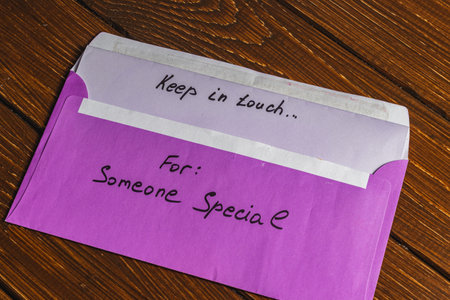 Keep in touch...
For:
Someone Special